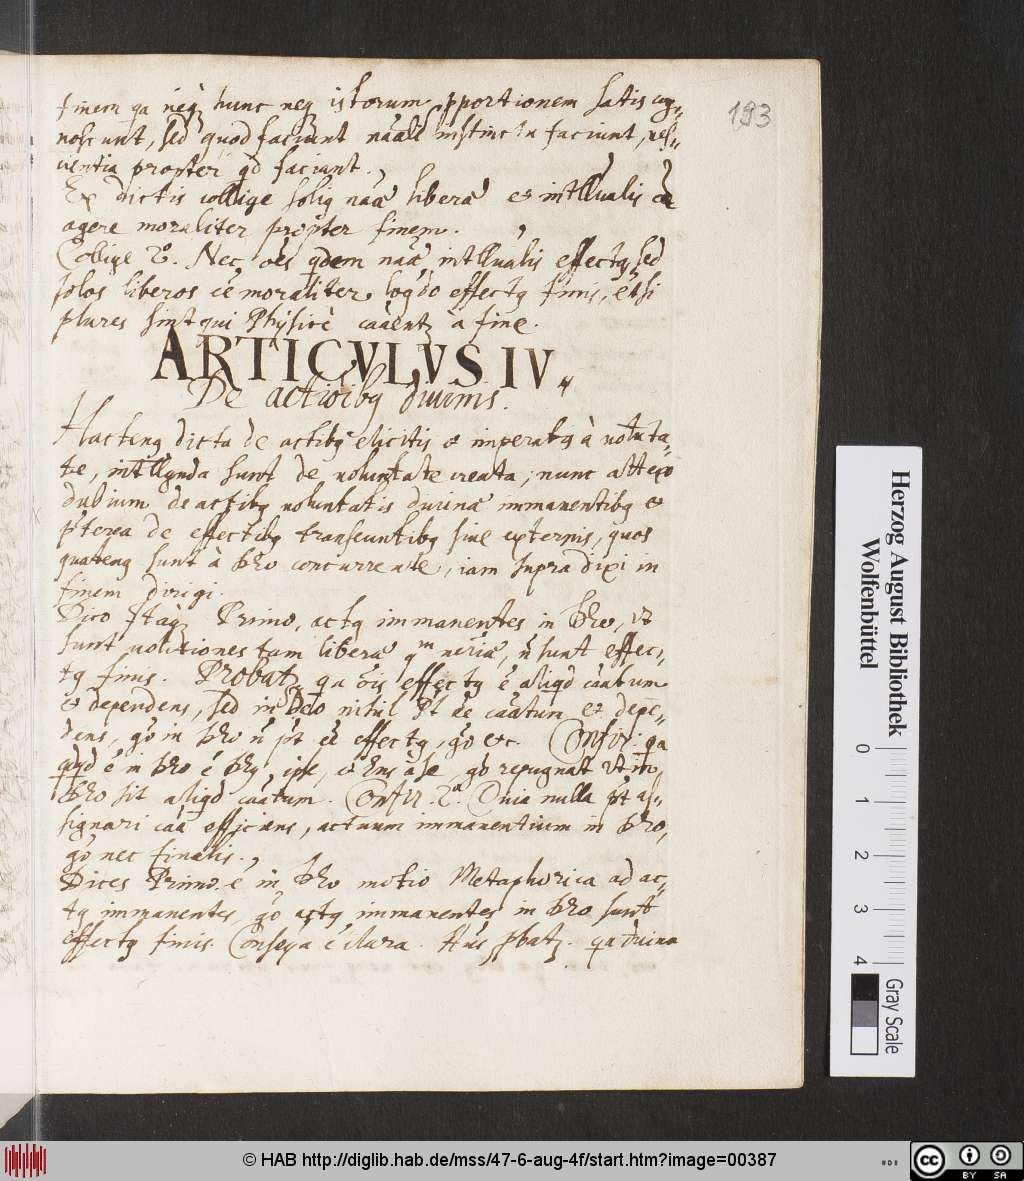 193
finem qa neq hunc neq istorum pportionem satis cog-
noscunt, sed quod faciunt nãali instinctu faciunt, nes-
cientia propter qd faciant.
Ex dictis collige solũ nãã liberã et intllualis
agere moraliter propter finem.
Collige 2º. Nec oẽs qdem nãã intllualis effectq sed
solos liberos eẽ moraliter loqdo effectq finis, etsi
plures sint qui Physicè caãentz à fine.
ARTICVLVS IV.
De actioĩbq diuinis.
Hactenq dicta de actibq elicitis et imperatis à uolũta-
te, intllgnda sunt de uoluntate creata; nunc
dubium de actibq uoluntatis diuinæ immanentibq et
p̃terea de effectibq transeuntibq siue externis, quos
quatenq sunt à Dẽo concurrente, iam supra dixi in
finem dirigi.
Dico Itaq Primo, actq immanentes in Dẽo, ut
sunt uolitiones tam liberæ qm nẽriæ, ñ sunt effec-
tq finis. Probatz qa oĩs effectq ẽ aliqd caãtum
et dependens, sed in Deo nihil pt eẽ caãtum et depẽ-
dens, gò in Dẽo ñ pt eẽ effectq, gò etc. Confir: qa
qqd ẽ in Dẽo ẽ Dẽq ipse, et Ens à se, gò repugnat ut in
Dẽo sit aliqd caãtum. Confir. 2ª. Quia nulla pt as-
signari caã efficiens, actuum immanentium in Dẽo,
gò nec finalis.
Dices Primo ẽ in Dẽo motio Metaphorica ad ac-
tq immanentes, gò actq immanentes in Dẽo sunt
effectq finis. Conseqa ẽ clara. Añs pbatz. qa diuina
Herzog August Bibliothek
Wolfenbüttel
0 1 2 3 4
Gray Scale
© HAB http://diglib.hab.de/mss/47-6-aug-4f/start.htm?image=00387
cc BY SA